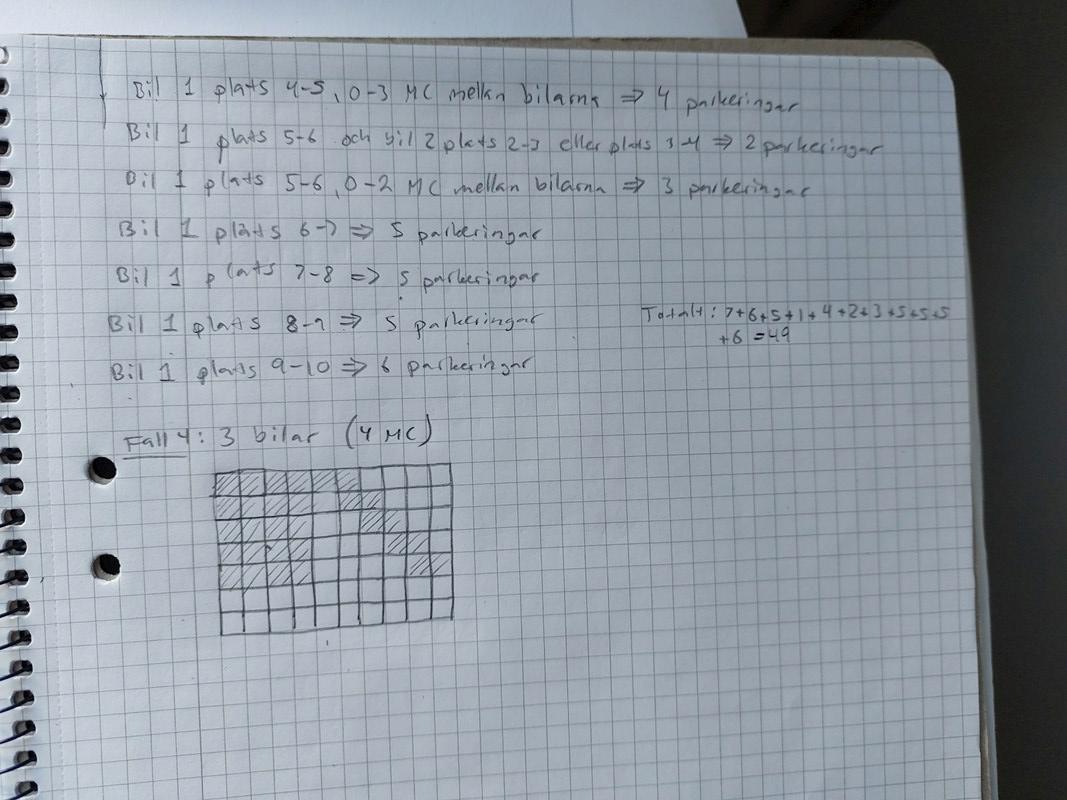 Bil 1 plats 4-5, 0-3 MC mellan bilarna => 4 parkeringar
Bil 1 plats 5-6 och bil 2 plats 2-3 eller plats 3-4 => 2 parkeringar
Bil 1 plats 5-6, 0-2 MC mellan bilarna => 3 parkeringar
Bil 1 plats 6-7 => 5 parkeringar
Bil 1 plats 7-8 => 5 parkeringar
Bil 1 plats 8-9 => 5 parkeringar
Totalt: 7+6+5+1+4+2+3+5+5+5
+6 =49
Bil 1 plats 9-10 => 6 parkeringar
Fall 4: 3 bilar (4 MC)